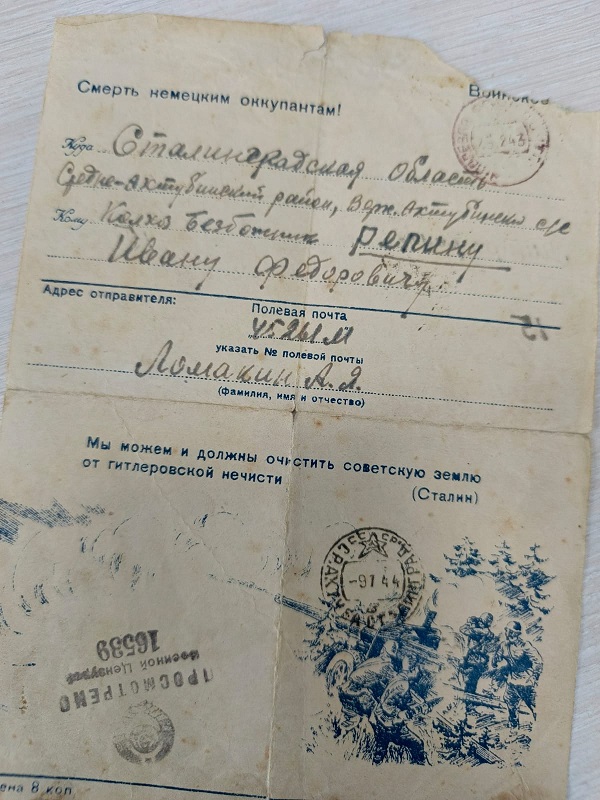 Смерть немецким оккупантам!
Воинское
Куда Сталинградская область
Средне-Ахтубинский район, Верх. Ахтубинско с/с
Кому Колхоз Безбожник Репину
Ивану Федоровичу
Адрес отправителя:
Полевая почта
указать № полевой почты
Ломакин А. Я.
(фамилия, имя и отчество)
Мы можем и должны очистить советскую землю
от гитлеровской нечисти
(Сталин)
-9 7 44
ПРОСМОТРЕНО
Военной Цензурой
16539
ена 8 коп